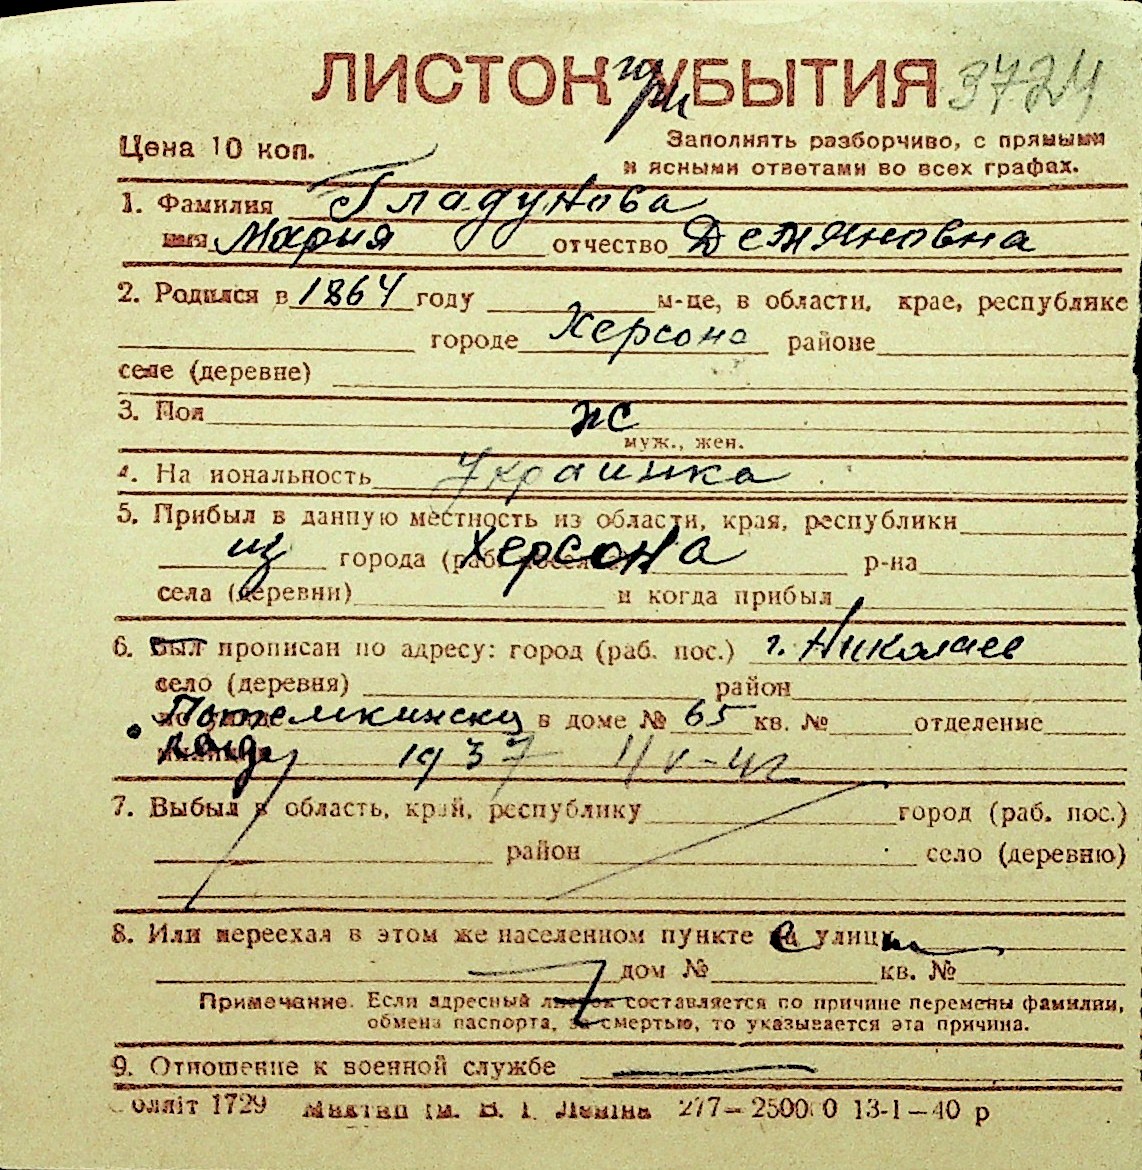 ЛИСТОК УБЫТИЯ 3724
при
Цена 10 коп.
Заполнять разборчиво, с прямыми
и ясными ответами во всех графах.
1. Фамилия Гладунова
имя Мария отчество Демяновна
2. Родился в 1864 году м-це, в области, крае, республике
городе Херсоне районе
селе (деревне)
3. Пол ж
муж., жен.
4. Национальность Украинка
5. Прибыл в данную местность из области, края, республики
из города (раб. поселка) Херсона р-на
села (деревни) и когда прибыл
6. Был прописан по адресу: город (раб. пос.) г. Николаев
село (деревня) район
по улице в доме № 65 кв. № отделение
милиции 1937
7. Выбыл в область, край, республику город (раб. пос.)
район село (деревню)
8. Или переехал в этом же населенном пункте на улицу
дом № кв. №
Примечание. Если адресный листок составляется по причине перемены фамилии,
обмена паспорта, за смертью, то указывается эта причина.
9. Отношение к военной службе
Облліт 1729 ім. В. І. Леніна 277—2500 0 13-I—40 р